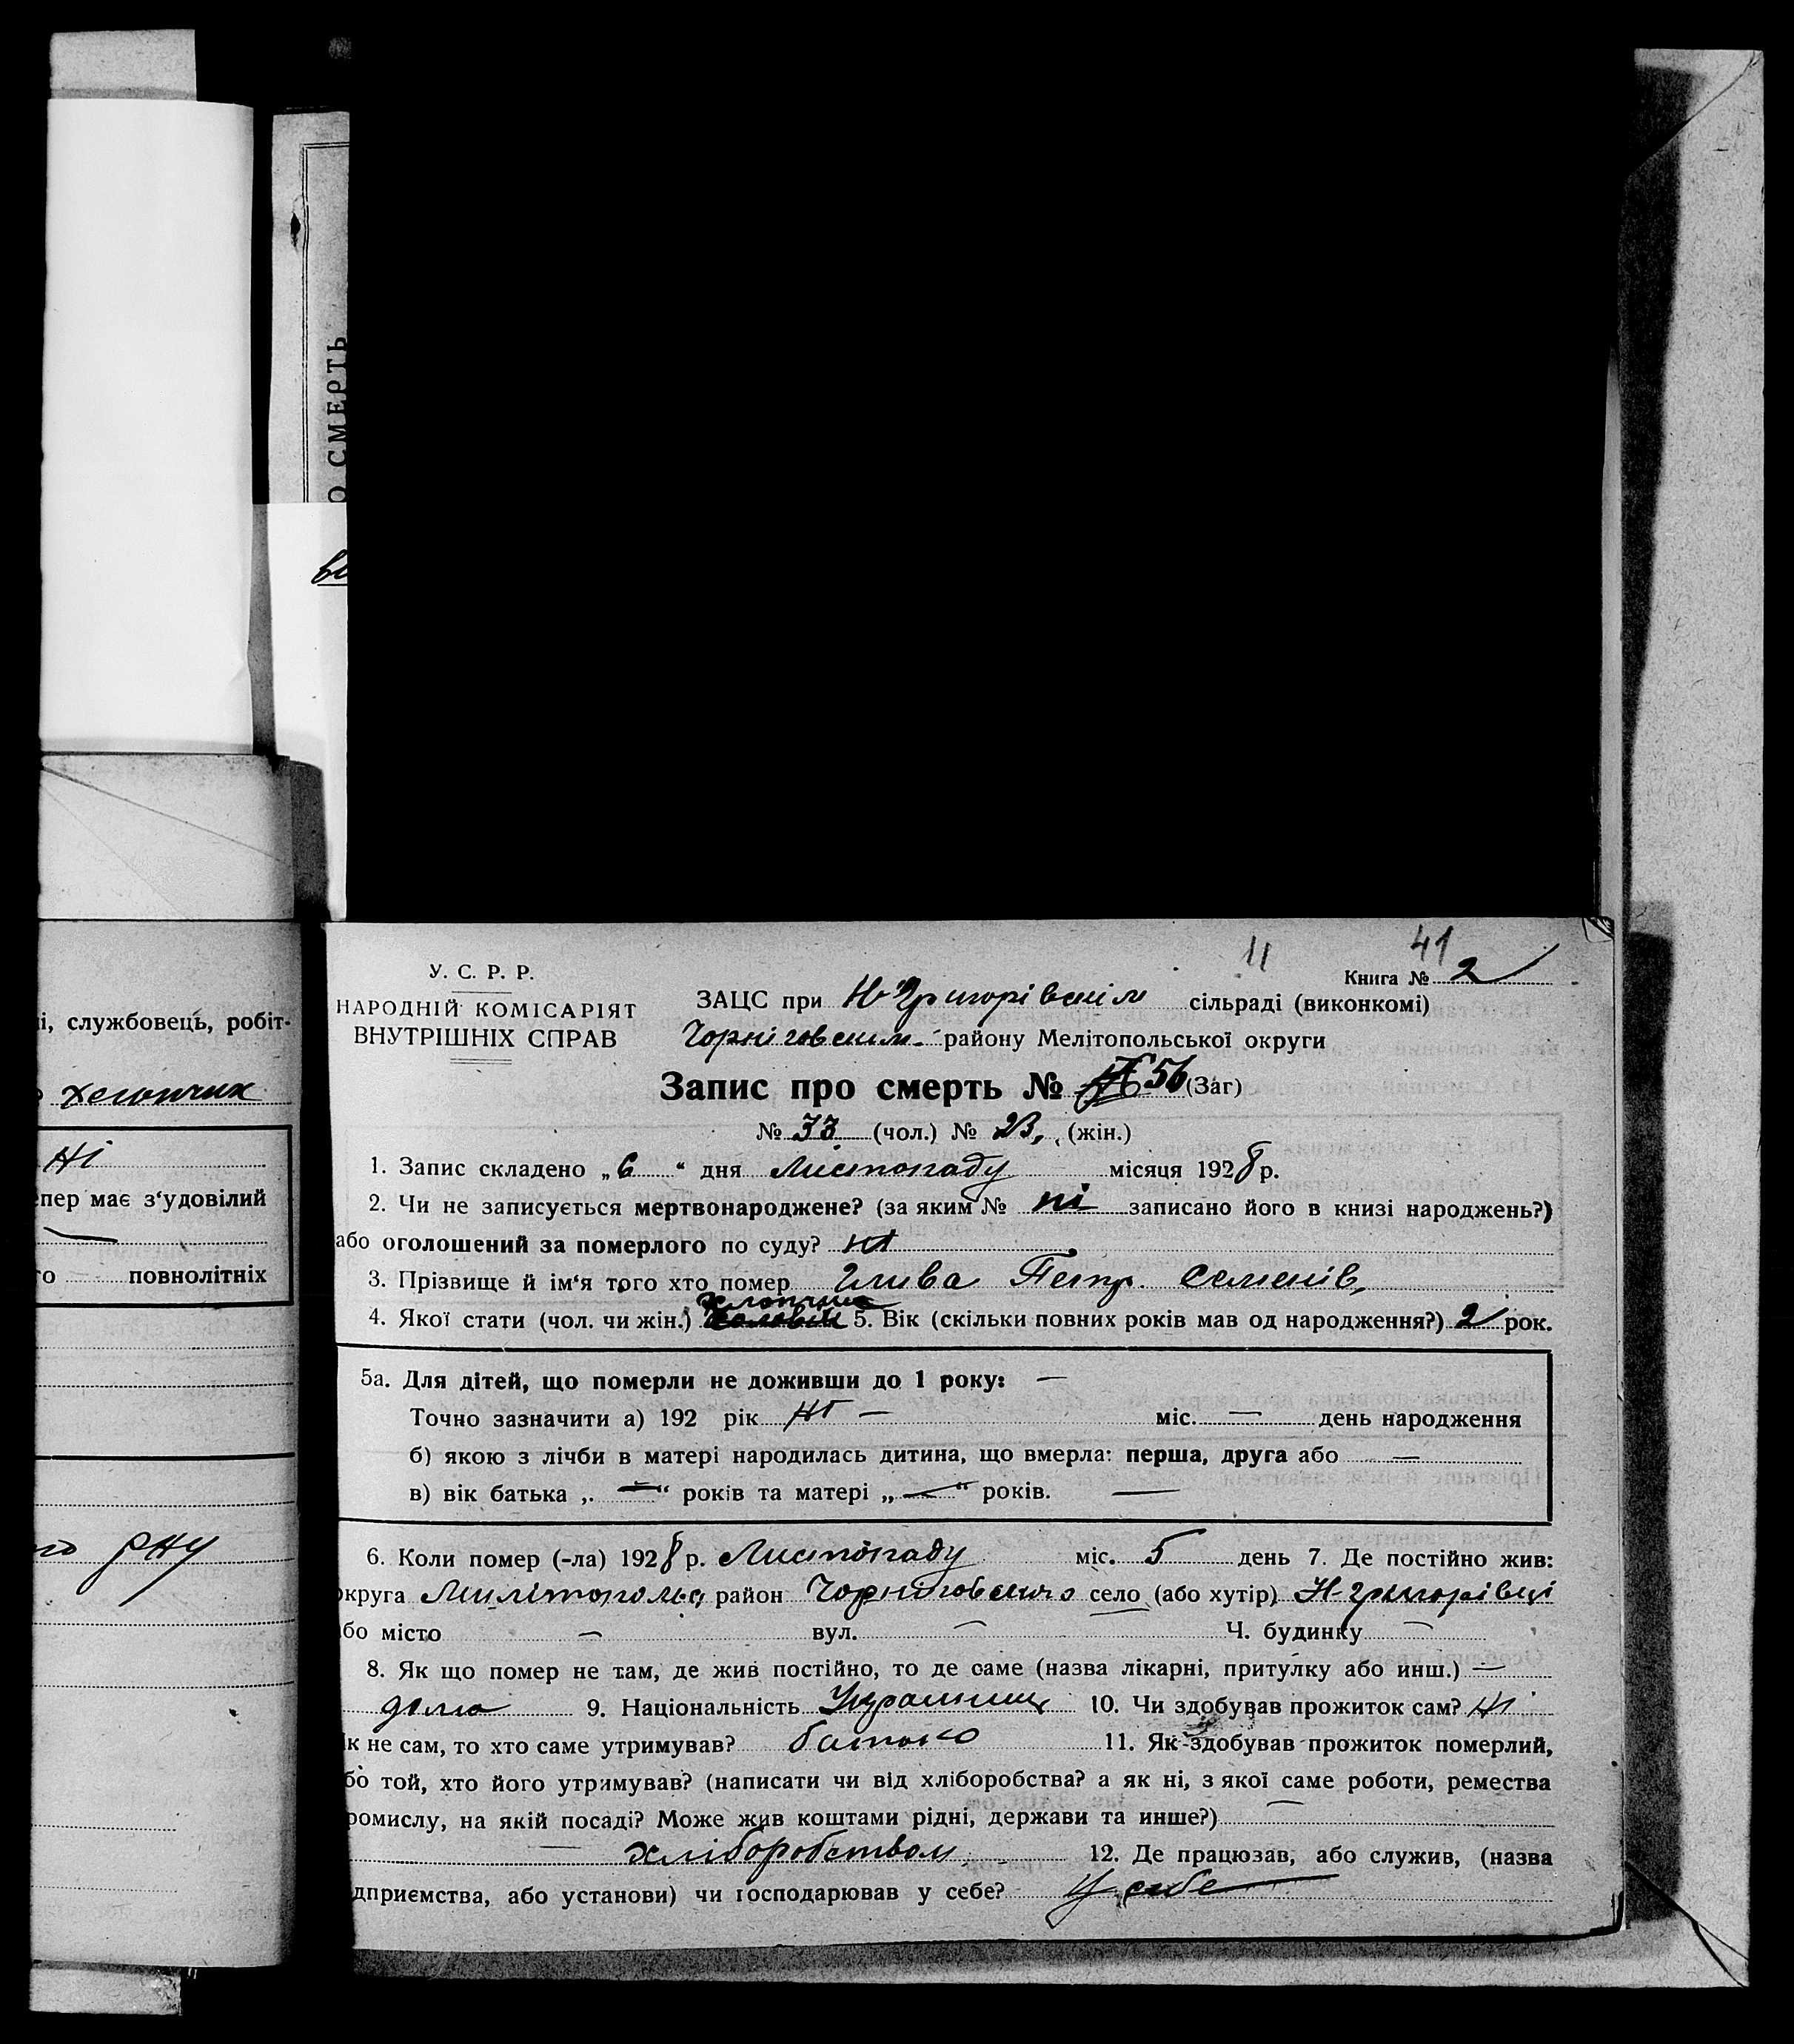 О СМЕРТЬ
і, службовець, робіт-
хлопчик
ні
епер має з'удовілий
—
го повнолітніх
11 41
Книга № 2
У. С. Р. Р.
НАРОДНІЙ КОМІСАРІЯТ
ВНУТРІШНІХ СПРАВ
ЗАЦС при Н-Григорівскім сільраді (виконкомі)
Чорніговским району Мелітопольської округи
Запис про смерть № 56 (Заг)
№ 33 (чол.) № 23, (жін.)
1. Запис складено „6“ дня Листопаду місяця 1928 р.
2. Чи не записується мертвонароджене? (за яким № ні записано його в книзі народжень?)
або оголошений за померлого по суду? ні
3. Прізвище й ім'я того хто помер Глива Петр. Семенів,
4. Якої стати (чол. чи жін.) хлопчик 5. Вік (скільки повних років мав од народження?) 2 рок.
5а. Для дітей, що померли не доживши до 1 року: —
Точно зазначити а) 192 рік ні — міс. — день народження
б) якою з лічби в матері народилась дитина, що вмерла: перша, друга або —
в) вік батька „ — “ років та матері „ — “ років. —
6. Коли помер (-ла) 1928 р. Листопаду міс. 5 день 7. Де постійно жив:
округа Милітопольс, район Чорніговского село (або хутір) Н-григорівці
або місто — вул. — Ч. будинку —
8. Як що помер не там, де жив постійно, то де саме (назва лікарні, притулку або инш.) —
дома 9. Національність Украинец 10. Чи здобував прожиток сам? ні
як не сам, то хто саме утримував? батько 11. Як здобував прожиток померлий,
бо той, хто його утримував? (написати чи від хліборобства? а як ні, з якої саме роботи, ремества
ромислу, на якій посаді? Може жив коштами рідні, держави та инше?) —
— хліборобством 12. Де працював, або служив, (назва
дприємства, або установи) чи господарював у себе? У себе